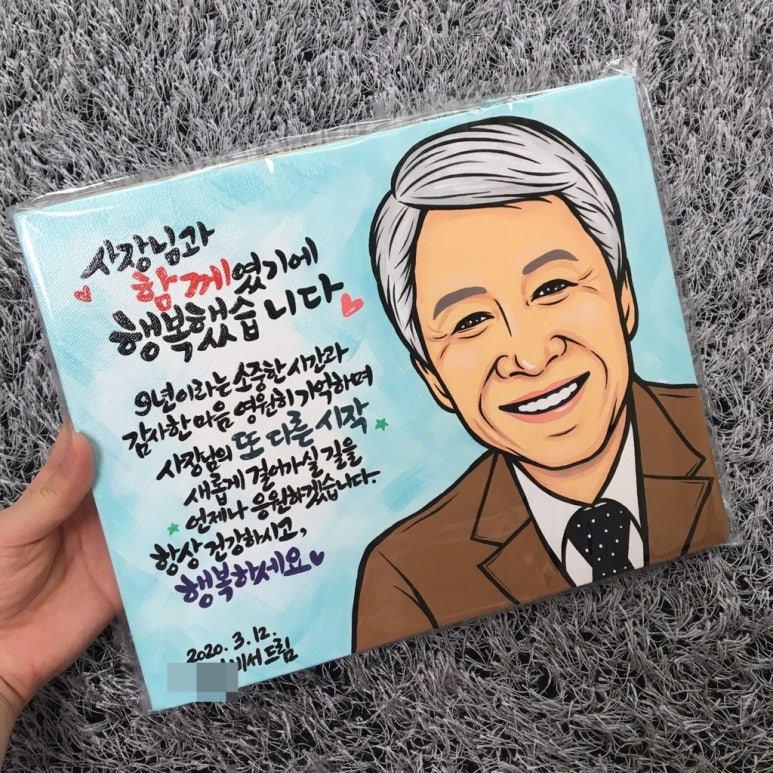 사장님과
함께였기에
행복했습니다
9년이라는 소중한 시간과
감사한 마음 영원히 기억하며
사장님의 또 다른 시작
새롭게 걸어가실 길을
언제나 응원하겠습니다.
항상 건강하시고,
행복하세요
2020. 3. 12.
에서 드림